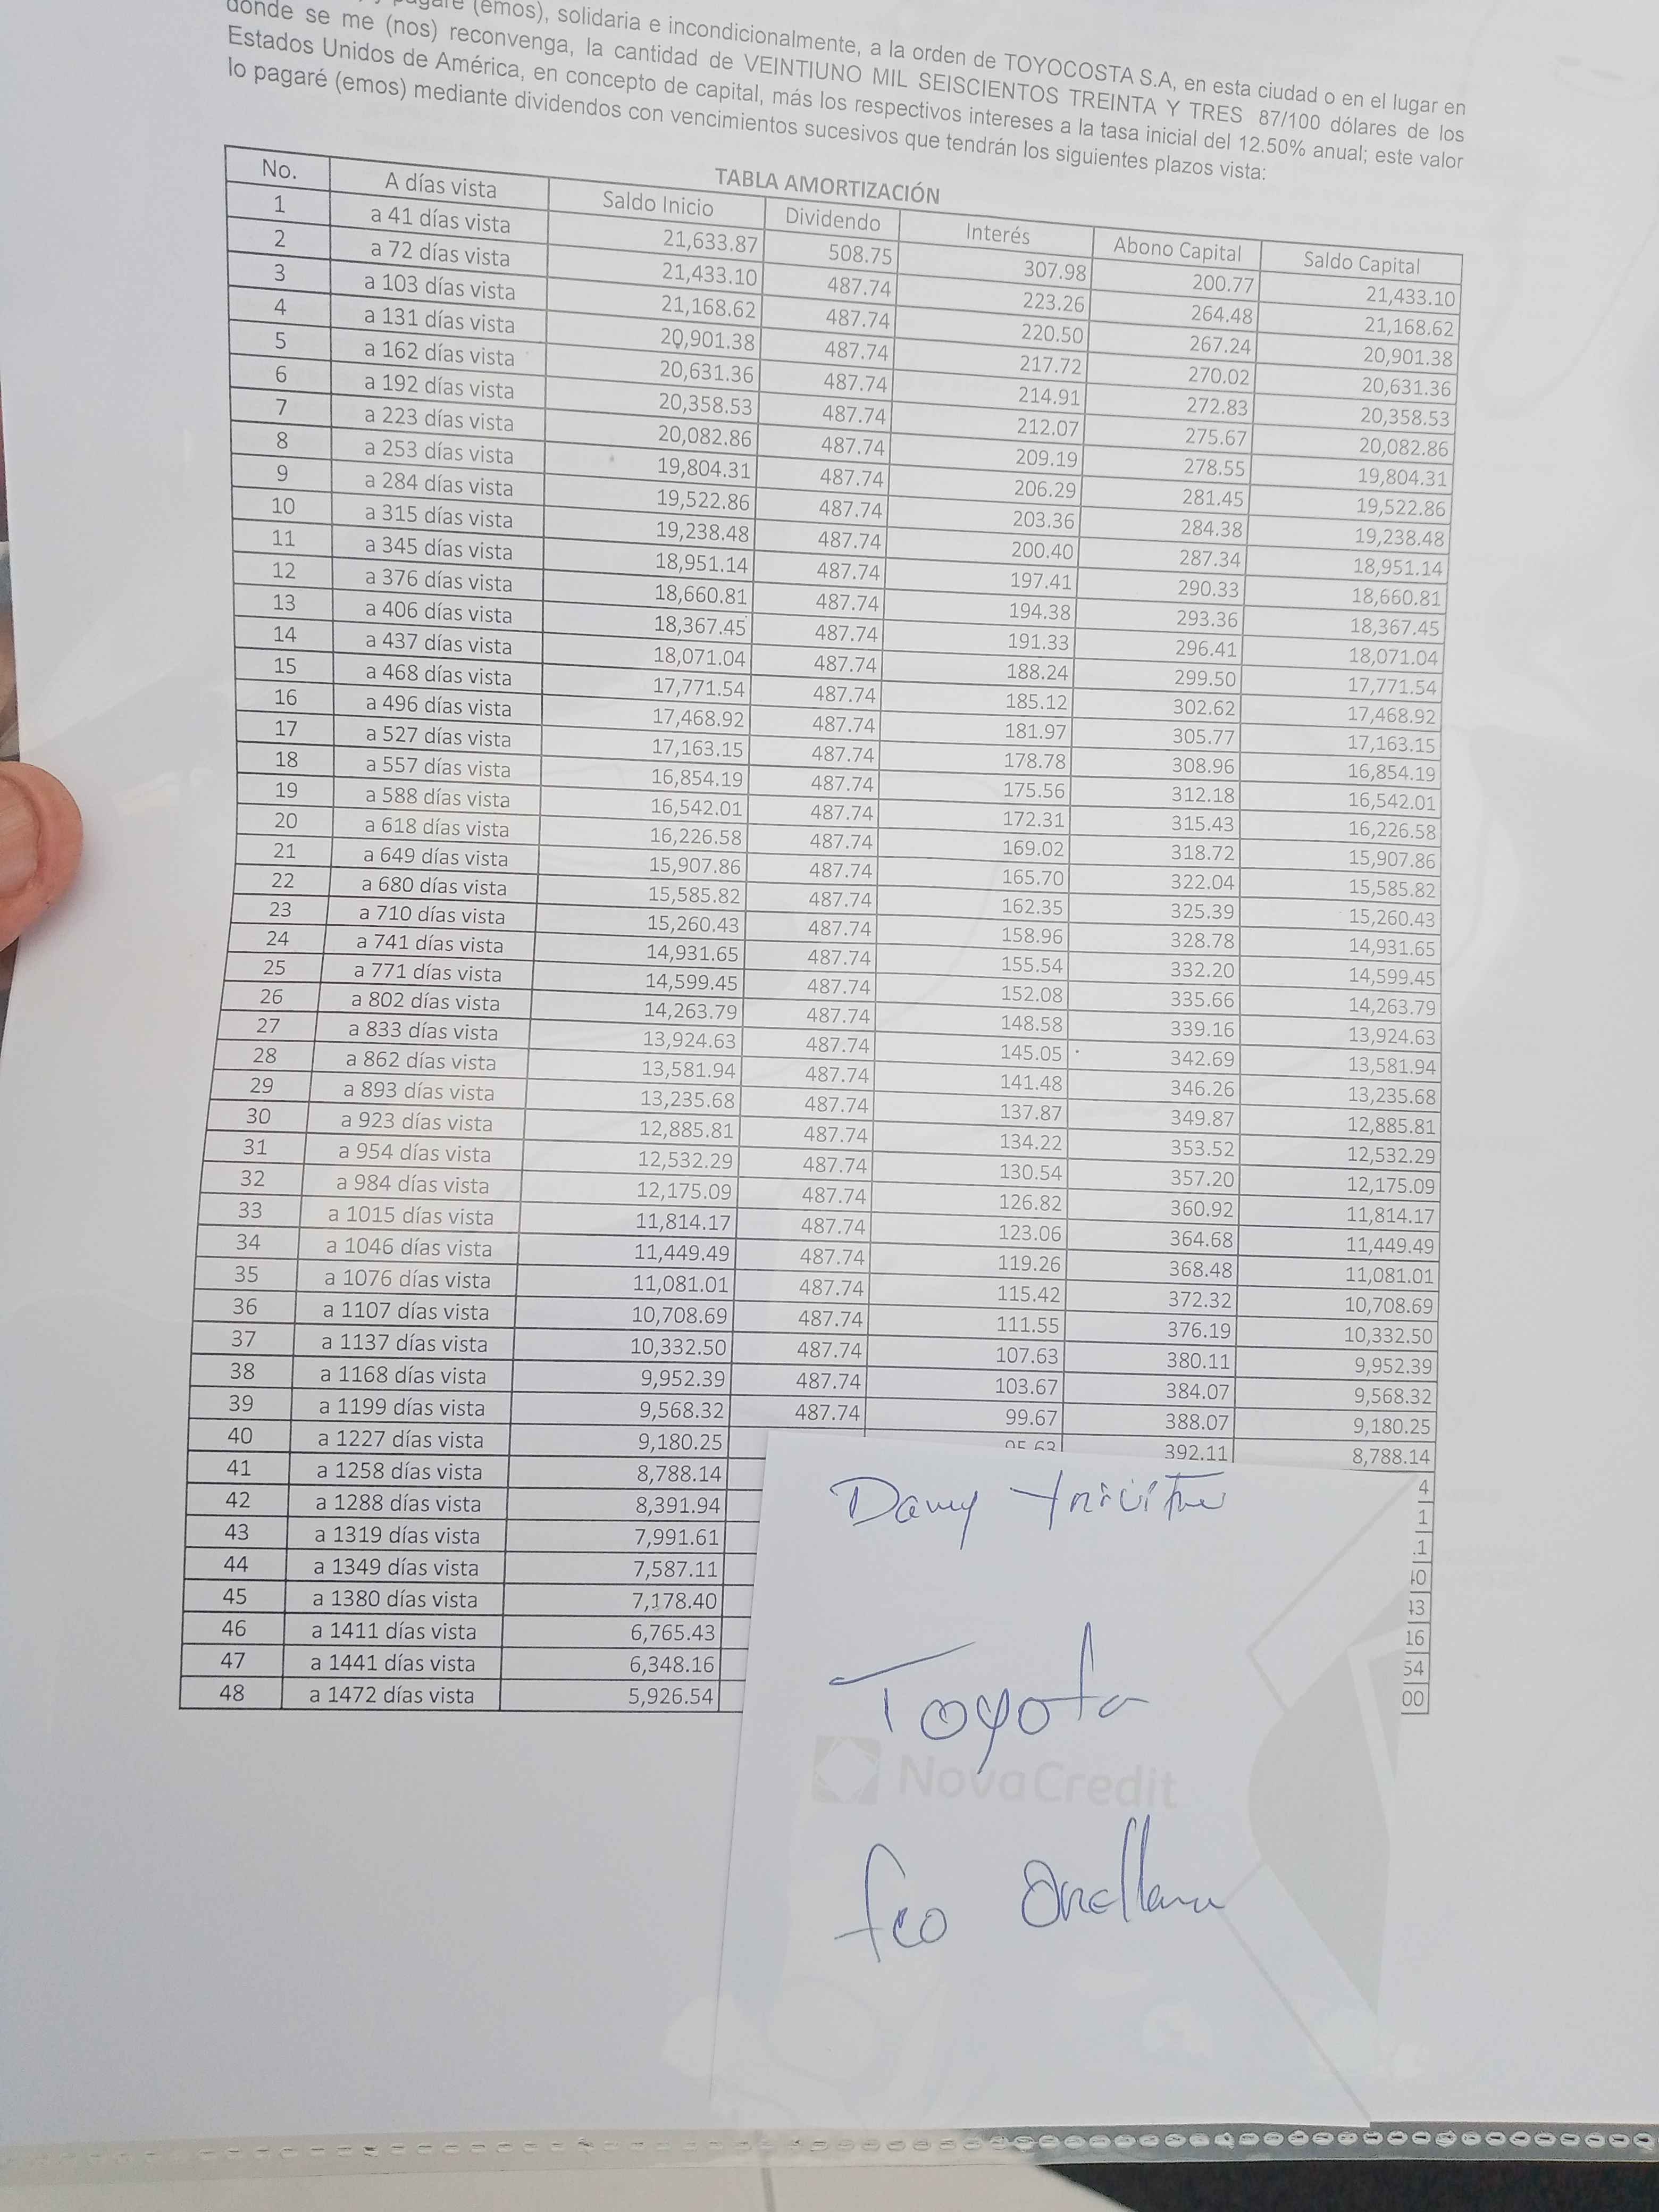 pagaré (emos), solidaria e incondicionalmente, a la orden de TOYOCOSTA S.A, en esta ciudad o en el lugar en
donde se me (nos) reconvenga, la cantidad de VEINTIUNO MIL SEISCIENTOS TREINTA Y TRES 87/100 dólares de los
Estados Unidos de América, en concepto de capital, más los respectivos intereses a la tasa inicial del 12.50% anual; este valor
lo pagaré (emos) mediante dividendos con vencimientos sucesivos que tendrán los siguientes plazos vista:
TABLA AMORTIZACIÓN
No. A días vista Saldo Inicio Dividendo Interés Abono Capital Saldo Capital
1 a 41 días vista 21,633.87 508.75 307.98 200.77 21,433.10
2 a 72 días vista 21,433.10 487.74 223.26 264.48 21,168.62
3 a 103 días vista 21,168.62 487.74 220.50 267.24 20,901.38
4 a 131 días vista 20,901.38 487.74 217.72 270.02 20,631.36
5 a 162 días vista 20,631.36 487.74 214.91 272.83 20,358.53
6 a 192 días vista 20,358.53 487.74 212.07 275.67 20,082.86
7 a 223 días vista 20,082.86 487.74 209.19 278.55 19,804.31
8 a 253 días vista 19,804.31 487.74 206.29 281.45 19,522.86
9 a 284 días vista 19,522.86 487.74 203.36 284.38 19,238.48
10 a 315 días vista 19,238.48 487.74 200.40 287.34 18,951.14
11 a 345 días vista 18,951.14 487.74 197.41 290.33 18,660.81
12 a 376 días vista 18,660.81 487.74 194.38 293.36 18,367.45
13 a 406 días vista 18,367.45 487.74 191.33 296.41 18,071.04
14 a 437 días vista 18,071.04 487.74 188.24 299.50 17,771.54
15 a 468 días vista 17,771.54 487.74 185.12 302.62 17,468.92
16 a 496 días vista 17,468.92 487.74 181.97 305.77 17,163.15
17 a 527 días vista 17,163.15 487.74 178.78 308.96 16,854.19
18 a 557 días vista 16,854.19 487.74 175.56 312.18 16,542.01
19 a 588 días vista 16,542.01 487.74 172.31 315.43 16,226.58
20 a 618 días vista 16,226.58 487.74 169.02 318.72 15,907.86
21 a 649 días vista 15,907.86 487.74 165.70 322.04 15,585.82
22 a 680 días vista 15,585.82 487.74 162.35 325.39 15,260.43
23 a 710 días vista 15,260.43 487.74 158.96 328.78 14,931.65
24 a 741 días vista 14,931.65 487.74 155.54 332.20 14,599.45
25 a 771 días vista 14,599.45 487.74 152.08 335.66 14,263.79
26 a 802 días vista 14,263.79 487.74 148.58 339.16 13,924.63
27 a 833 días vista 13,924.63 487.74 145.05 342.69 13,581.94
28 a 862 días vista 13,581.94 487.74 141.48 346.26 13,235.68
29 a 893 días vista 13,235.68 487.74 137.87 349.87 12,885.81
30 a 923 días vista 12,885.81 487.74 134.22 353.52 12,532.29
31 a 954 días vista 12,532.29 487.74 130.54 357.20 12,175.09
32 a 984 días vista 12,175.09 487.74 126.82 360.92 11,814.17
33 a 1015 días vista 11,814.17 487.74 123.06 364.68 11,449.49
34 a 1046 días vista 11,449.49 487.74 119.26 368.48 11,081.01
35 a 1076 días vista 11,081.01 487.74 115.42 372.32 10,708.69
36 a 1107 días vista 10,708.69 487.74 111.55 376.19 10,332.50
37 a 1137 días vista 10,332.50 487.74 107.63 380.11 9,952.39
38 a 1168 días vista 9,952.39 487.74 103.67 384.07 9,568.32
39 a 1199 días vista 9,568.32 487.74 99.67 388.07 9,180.25
40 a 1227 días vista 9,180.25 95.63 392.11 8,788.14
41 a 1258 días vista 8,788.14 4
42 a 1288 días vista 8,391.94 1
43 a 1319 días vista 7,991.61 .1
44 a 1349 días vista 7,587.11 40
45 a 1380 días vista 7,178.40 43
46 a 1411 días vista 6,765.43 16
47 a 1441 días vista 6,348.16 54
48 a 1472 días vista 5,926.54 00
Toyota
NovaCredit
fco Orellana